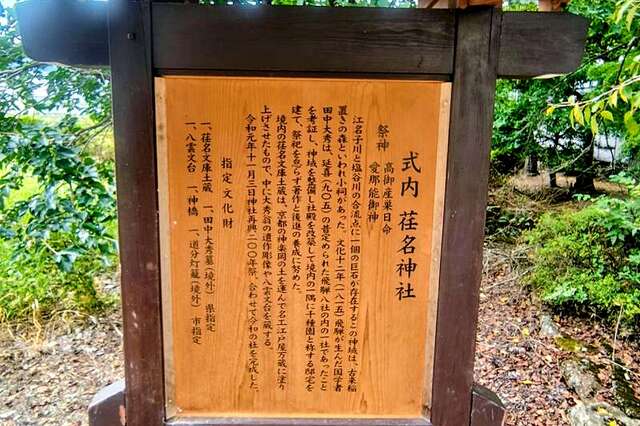 式内 荏名神社
祭神 高御産巣日命
愛那能御神
江名子川と塩谷川の合流点に一個の巨石が存在するこの神域は、古来稲
置きの森といわれ小祠があった。文化十二年(一八一五)飛騨が生んだ国学者
田中大秀は、延喜(九〇五)の昔定められた飛騨八社の内の一社であったこと
を考証し、神域を整備し社殿を改築して境内の一隅に千種園と称する邸宅を
建て、祭祀を怠らず著作と後進の養成に努めた。
境内の荏名文庫土蔵は、京都の神楽岡の土を運んで名工江戸屋万蔵に塗り
上げさせたもので、中に大秀翁の遺作彫像や八雲文台を蔵する。
令和元年十一月三日神社再興二〇〇年祭、合わせて令和の社を完成した。
指定・文化財
一、荏名文庫土蔵 一、田中大秀墓(境外) 県指定
一、八雲文台 一、神橋 一、道分灯籠(境外) 市指定